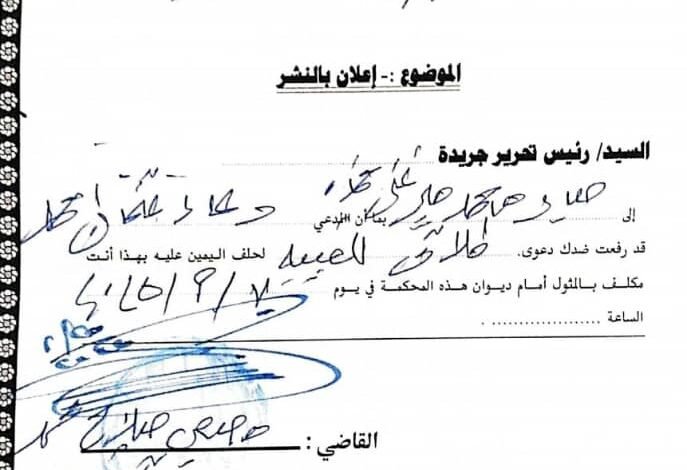 الموضوع :- إعلان بالنشر
السيد/ رئيس تحرير جريدة
إلى محمد بما أن المدعي دعاء عثمان احمد
قد رفعت ضدك دعوى. طلاق للغيبة لحلف اليمين عليه بهذا أنت
مكلف بالمثول أمام ديوان هذه المحكمة في يوم
الساعة .................... .
القاضي :